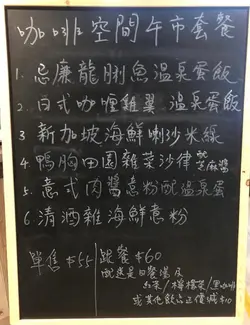 咖啡空間午市套餐
1. 忌廉龍脷魚溫泉蛋飯
2. 日式咖喱雞翼溫泉蛋飯
3. 新加坡海鮮喇沙米線
4. 鴨胸田園雜菜沙律 配芝麻醬
5. 意式肉醬意粉配溫泉蛋
6. 清酒雜海鮮意粉
單售 $55
跟餐 $60
配送是日餐湯及
紅茶/檸檬茶/黑咖啡
或其他飲品正價減$10